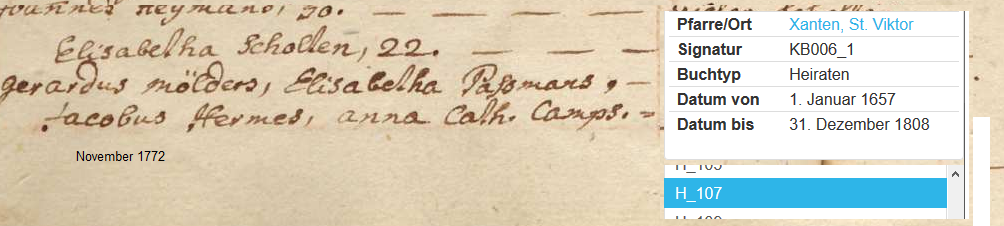 Joannes Heymans, 30. — — — —
Elisabetha Schollen, 22. — — —
gerardus mölders, Elisabetha Paßmans, —
Jacobus Hermes, anna Cath. Camps. =
November 1772
Pfarre/Ort Xanten, St. Viktor
Signatur KB006_1
Buchtyp Heiraten
Datum von 1. Januar 1657
Datum bis 31. Dezember 1808
H_105
H_107